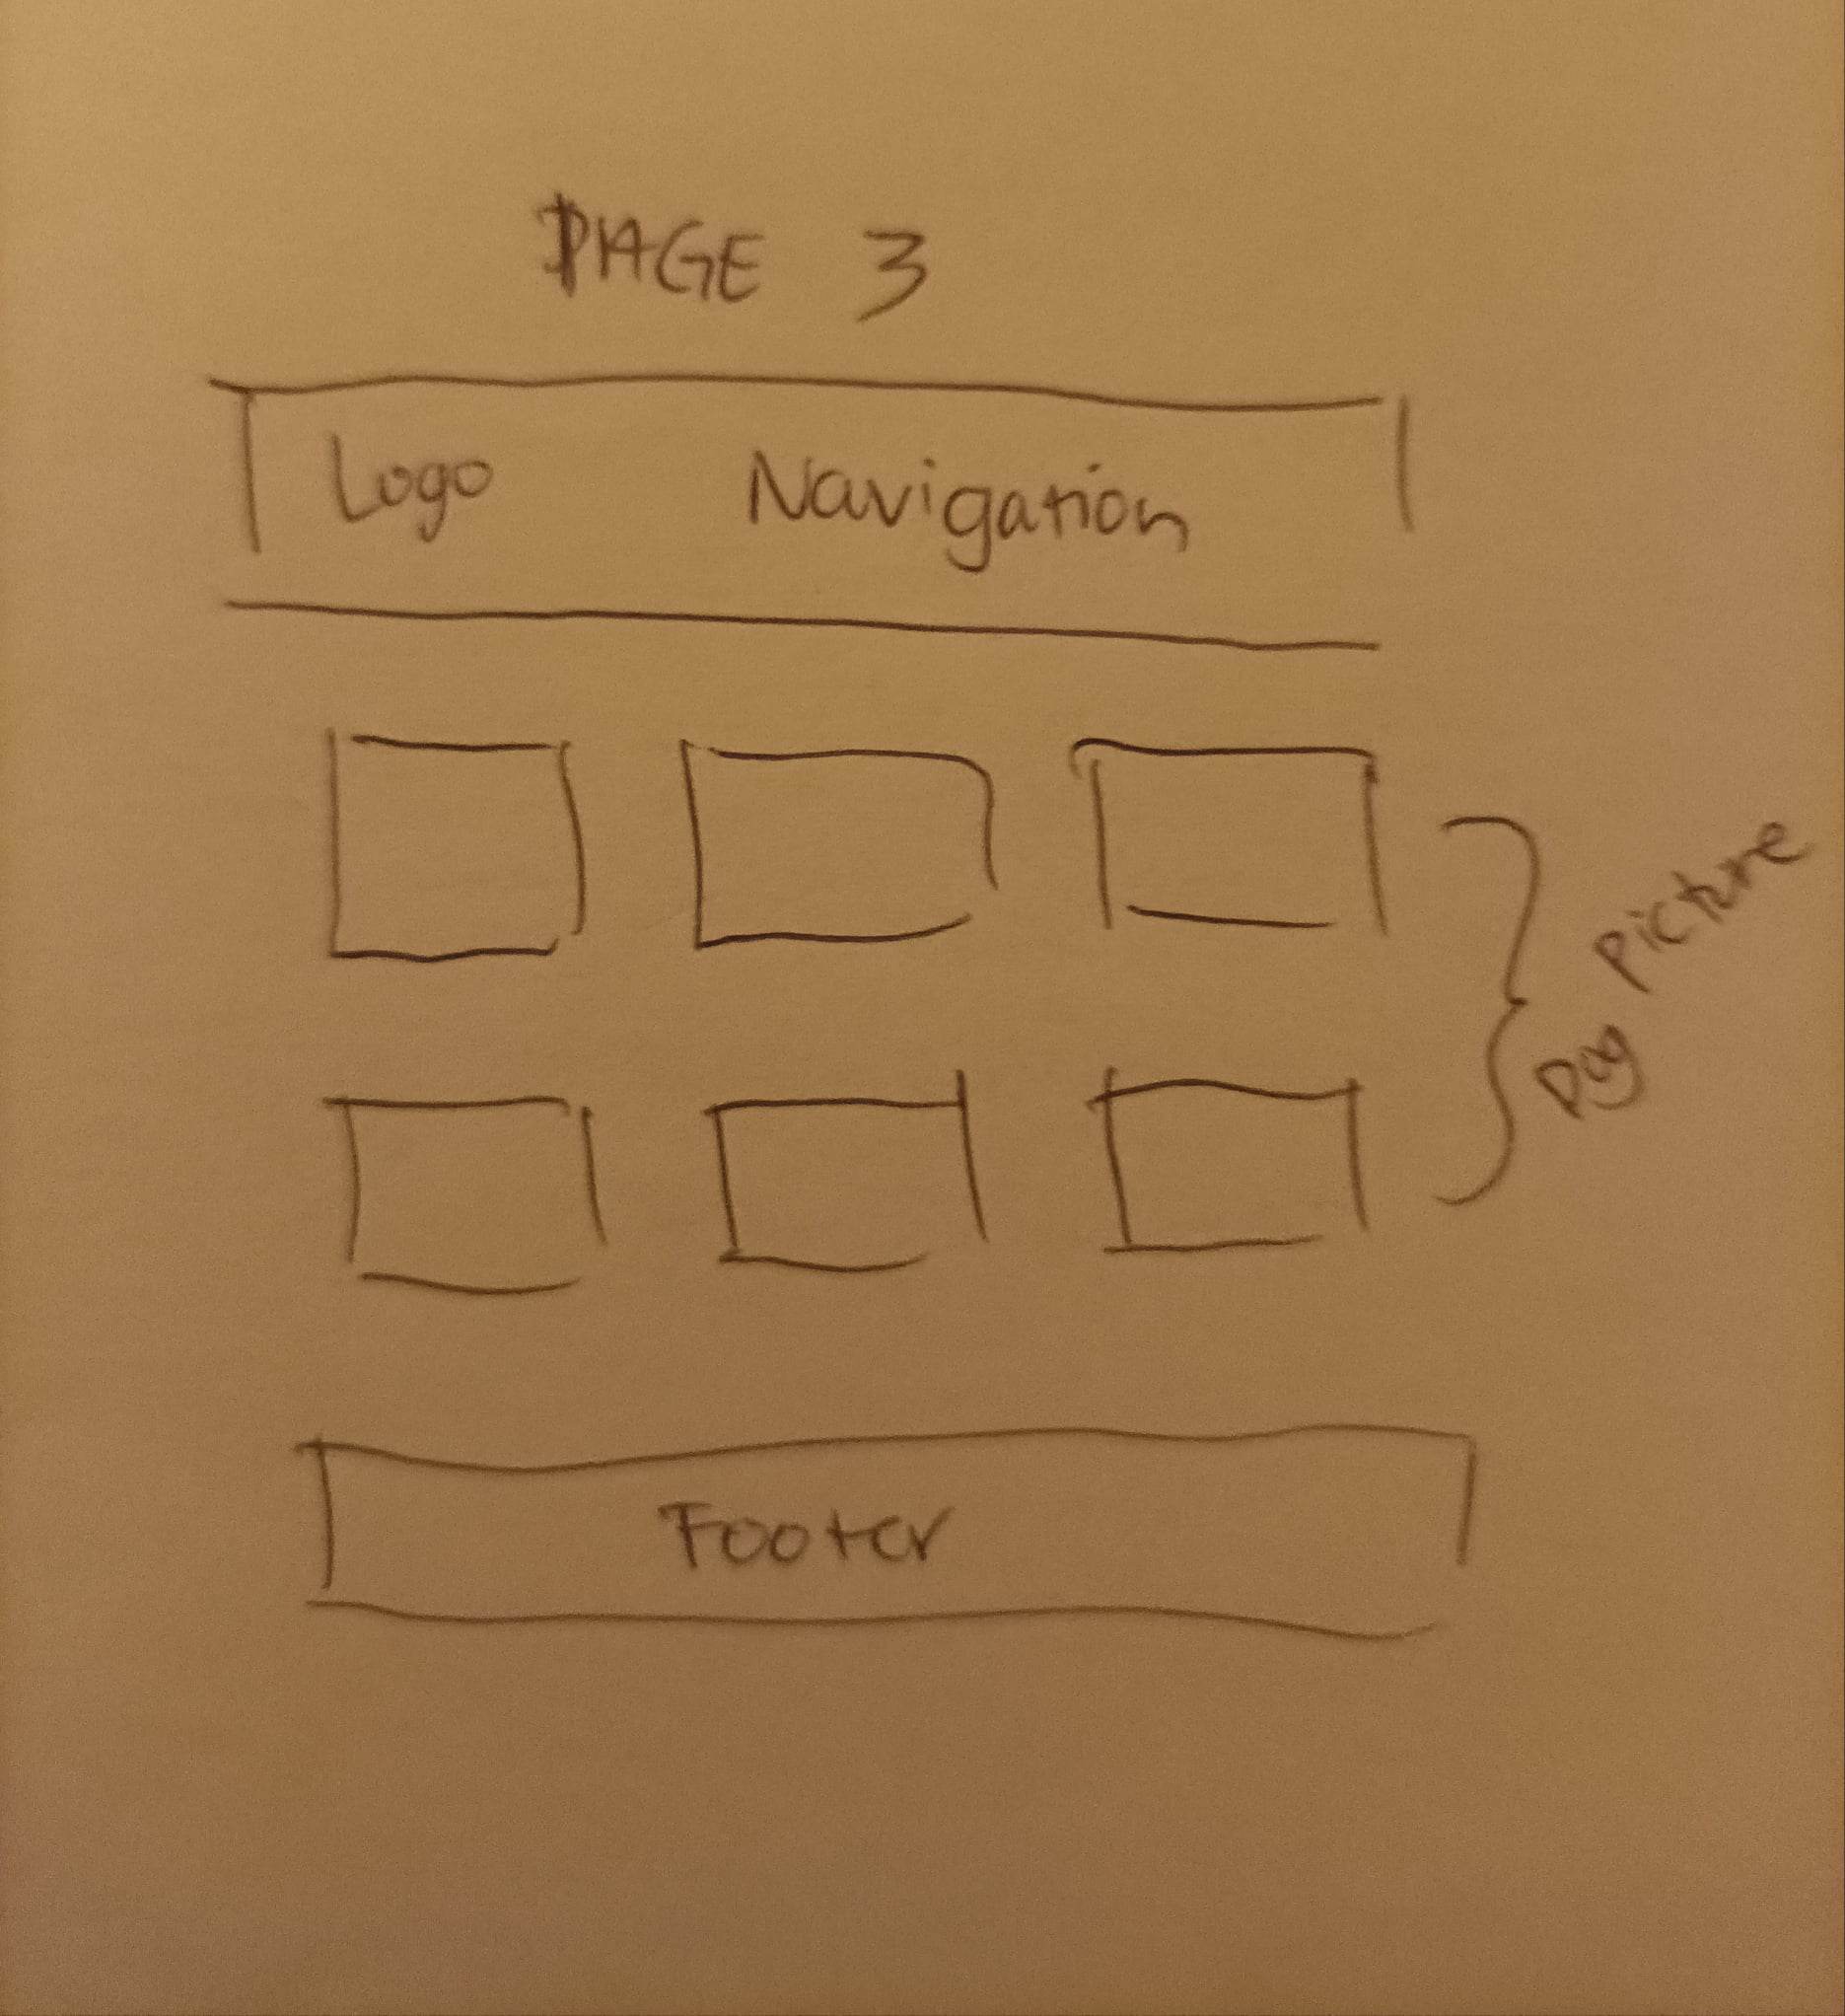 PAGE 3
Logo Navigation
Dog Picture
Footer